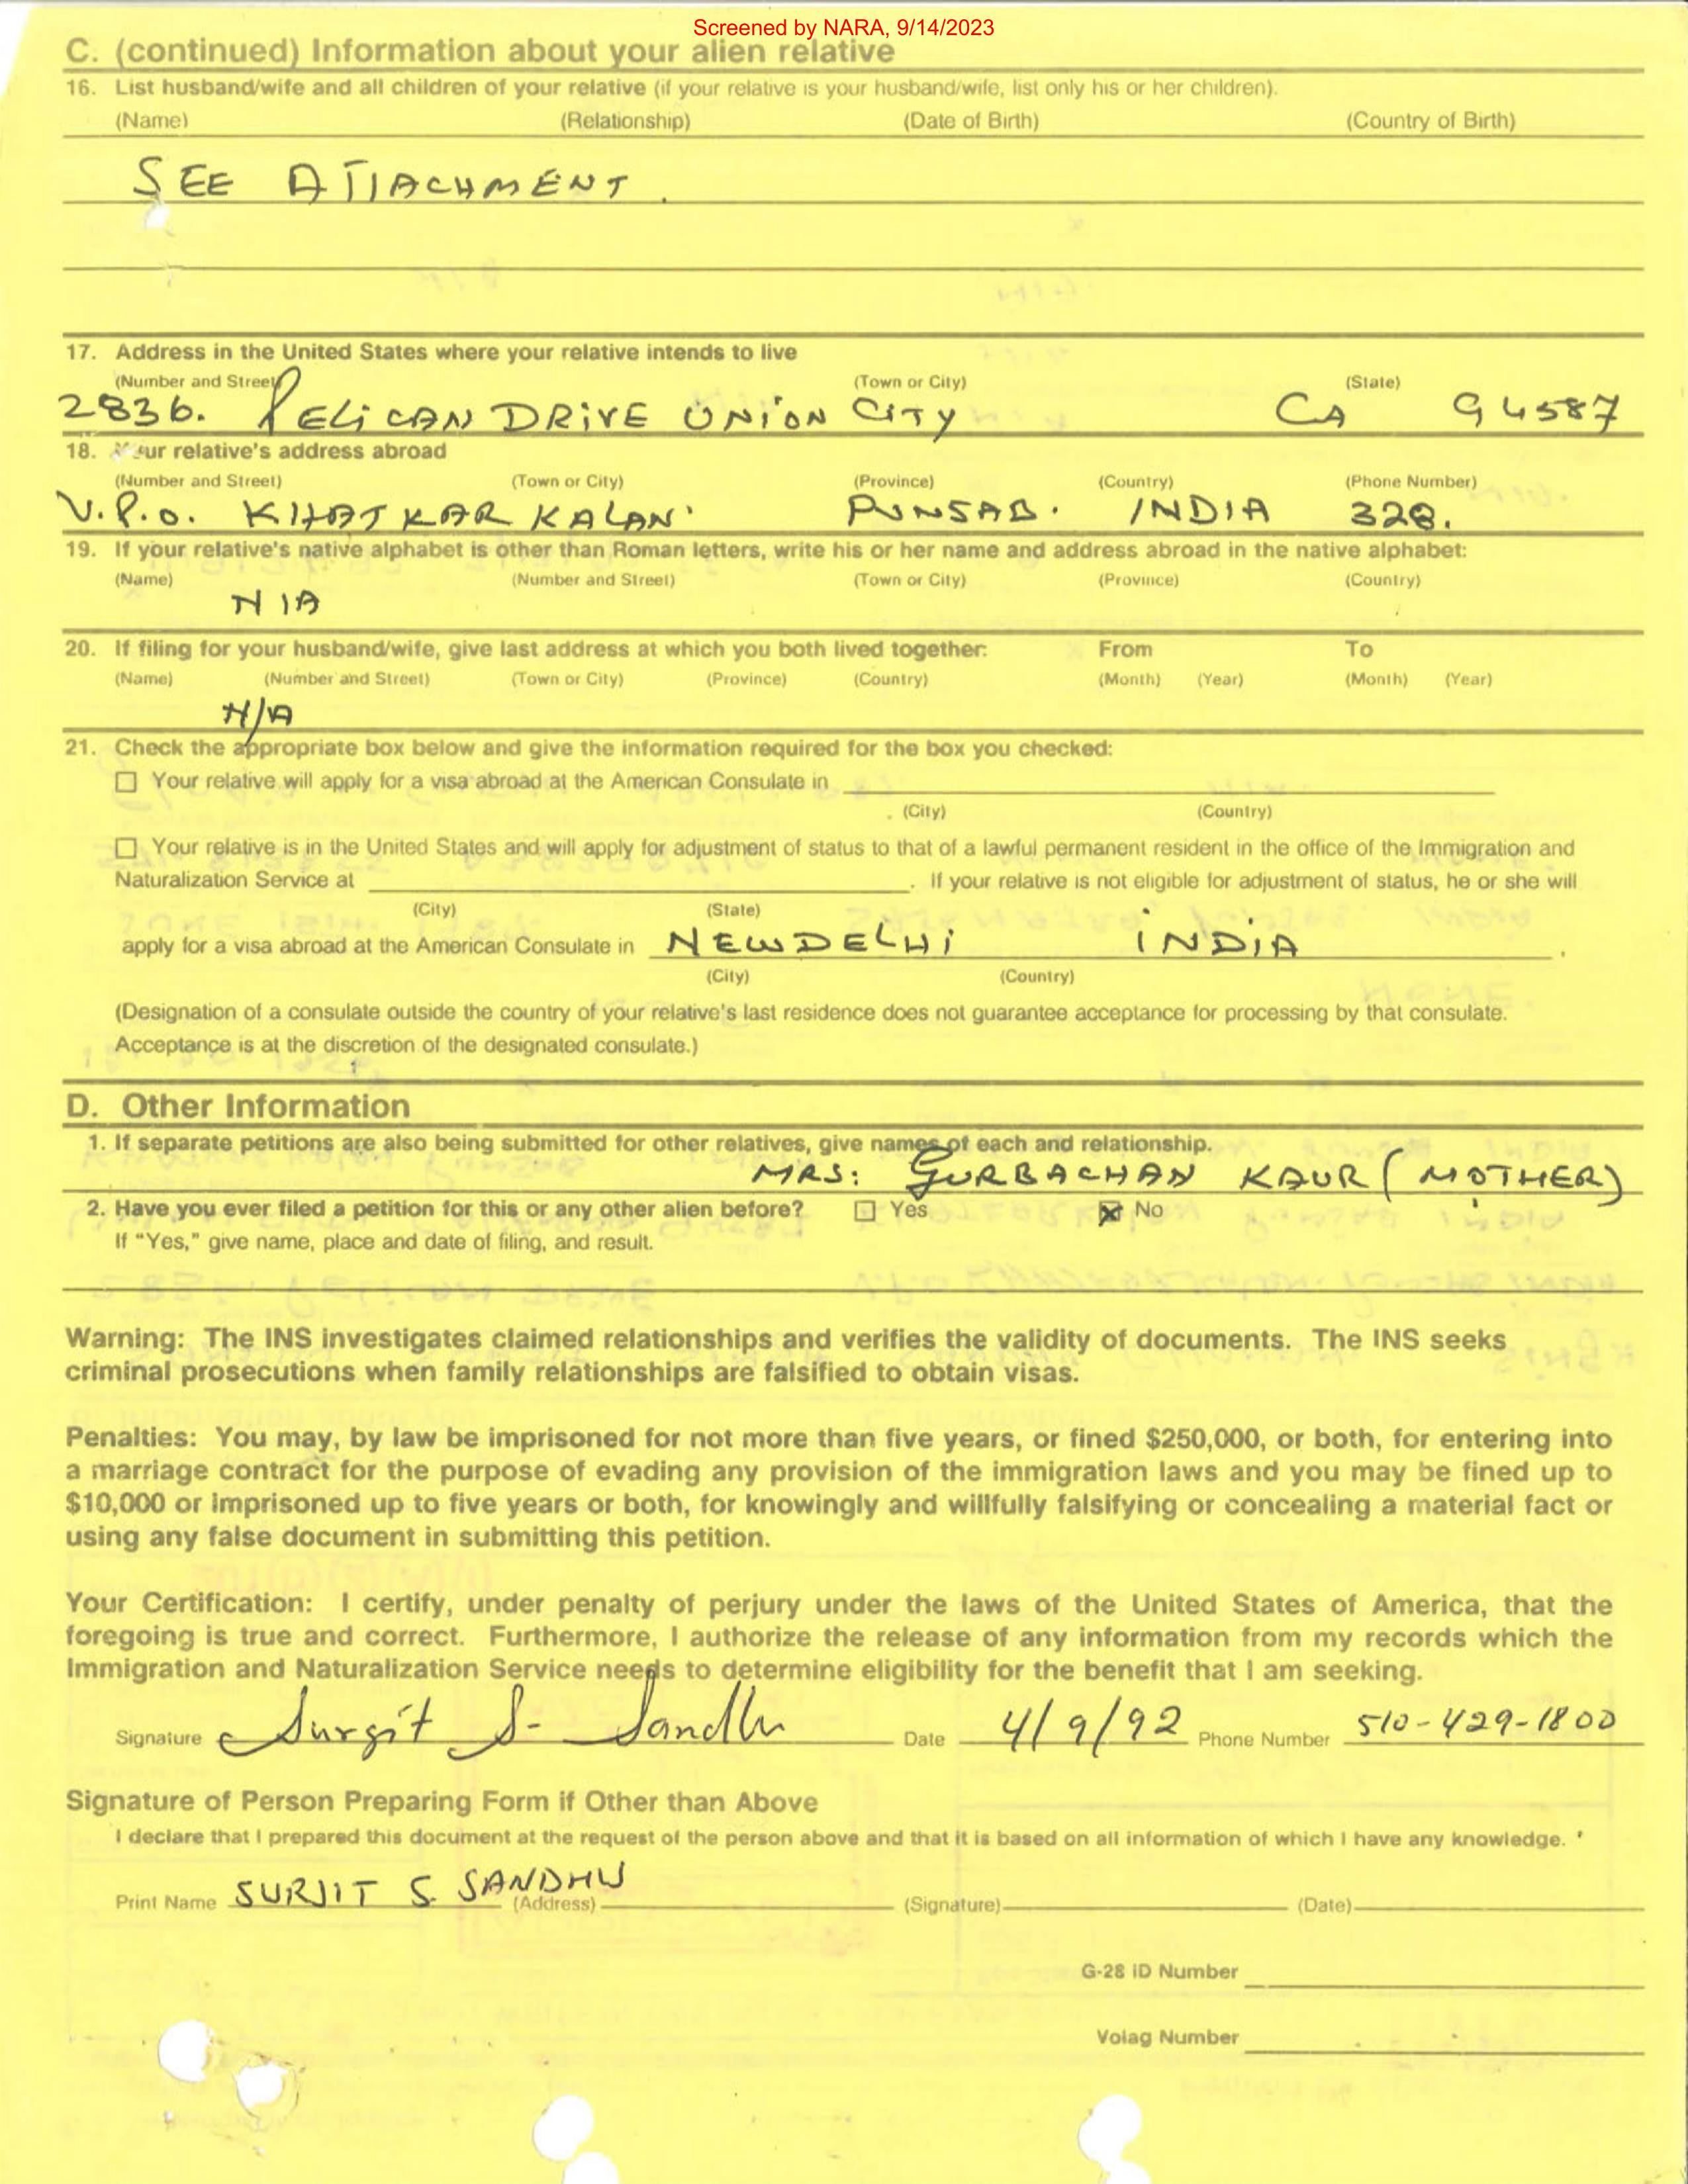 Screened by NARA, 9/14/2023
C. (continued) Information about your alien relative
16. List husband/wife and all children of your relative (if your relative is your husband/wife, list only his or her children).
(Name) (Relationship) (Date of Birth) (Country of Birth)
SEE ATTACHMENT.
17. Address in the United States where your relative intends to live
(Number and Street) (Town or City) (State)
2836. PELICAN DRIVE UNION CITY CA 94587
18. Your relative's address abroad
(Number and Street) (Town or City) (Province) (Country) (Phone Number)
V.P.O. KHATKAR KALAN PUNJAB. INDIA 328.
19. If your relative's native alphabet is other than Roman letters, write his or her name and address abroad in the native alphabet:
(Name) (Number and Street) (Town or City) (Province) (Country)
N/A
20. If filing for your husband/wife, give last address at which you both lived together: From To
(Name) (Number and Street) (Town or City) (Province) (Country) (Month) (Year) (Month) (Year)
N/A
21. Check the appropriate box below and give the information required for the box you checked:
☐ Your relative will apply for a visa abroad at the American Consulate in
(City) (Country)
☐ Your relative is in the United States and will apply for adjustment of status to that of a lawful permanent resident in the office of the Immigration and
Naturalization Service at . If your relative is not eligible for adjustment of status, he or she will
(City) (State)
apply for a visa abroad at the American Consulate in NEW DELHI INDIA .
(City) (Country)
(Designation of a consulate outside the country of your relative's last residence does not guarantee acceptance for processing by that consulate.
Acceptance is at the discretion of the designated consulate.)
D. Other Information
1. If separate petitions are also being submitted for other relatives, give names of each and relationship.
MRS: GURBACHAN KAUR (MOTHER)
2. Have you ever filed a petition for this or any other alien before? ☐ Yes ☒ No
If "Yes," give name, place and date of filing, and result.
Warning: The INS investigates claimed relationships and verifies the validity of documents. The INS seeks
criminal prosecutions when family relationships are falsified to obtain visas.
Penalties: You may, by law be imprisoned for not more than five years, or fined $250,000, or both, for entering into
a marriage contract for the purpose of evading any provision of the immigration laws and you may be fined up to
$10,000 or imprisoned up to five years or both, for knowingly and willfully falsifying or concealing a material fact or
using any false document in submitting this petition.
Your Certification: I certify, under penalty of perjury under the laws of the United States of America, that the
foregoing is true and correct. Furthermore, I authorize the release of any information from my records which the
Immigration and Naturalization Service needs to determine eligibility for the benefit that I am seeking.
Signature Surjit S. Sandhu Date 4/9/92 Phone Number 510-429-1800
Signature of Person Preparing Form if Other than Above
I declare that I prepared this document at the request of the person above and that it is based on all information of which I have any knowledge.
Print Name SURJIT S. SANDHU (Address) (Signature) (Date)
G-28 ID Number
Volag Number